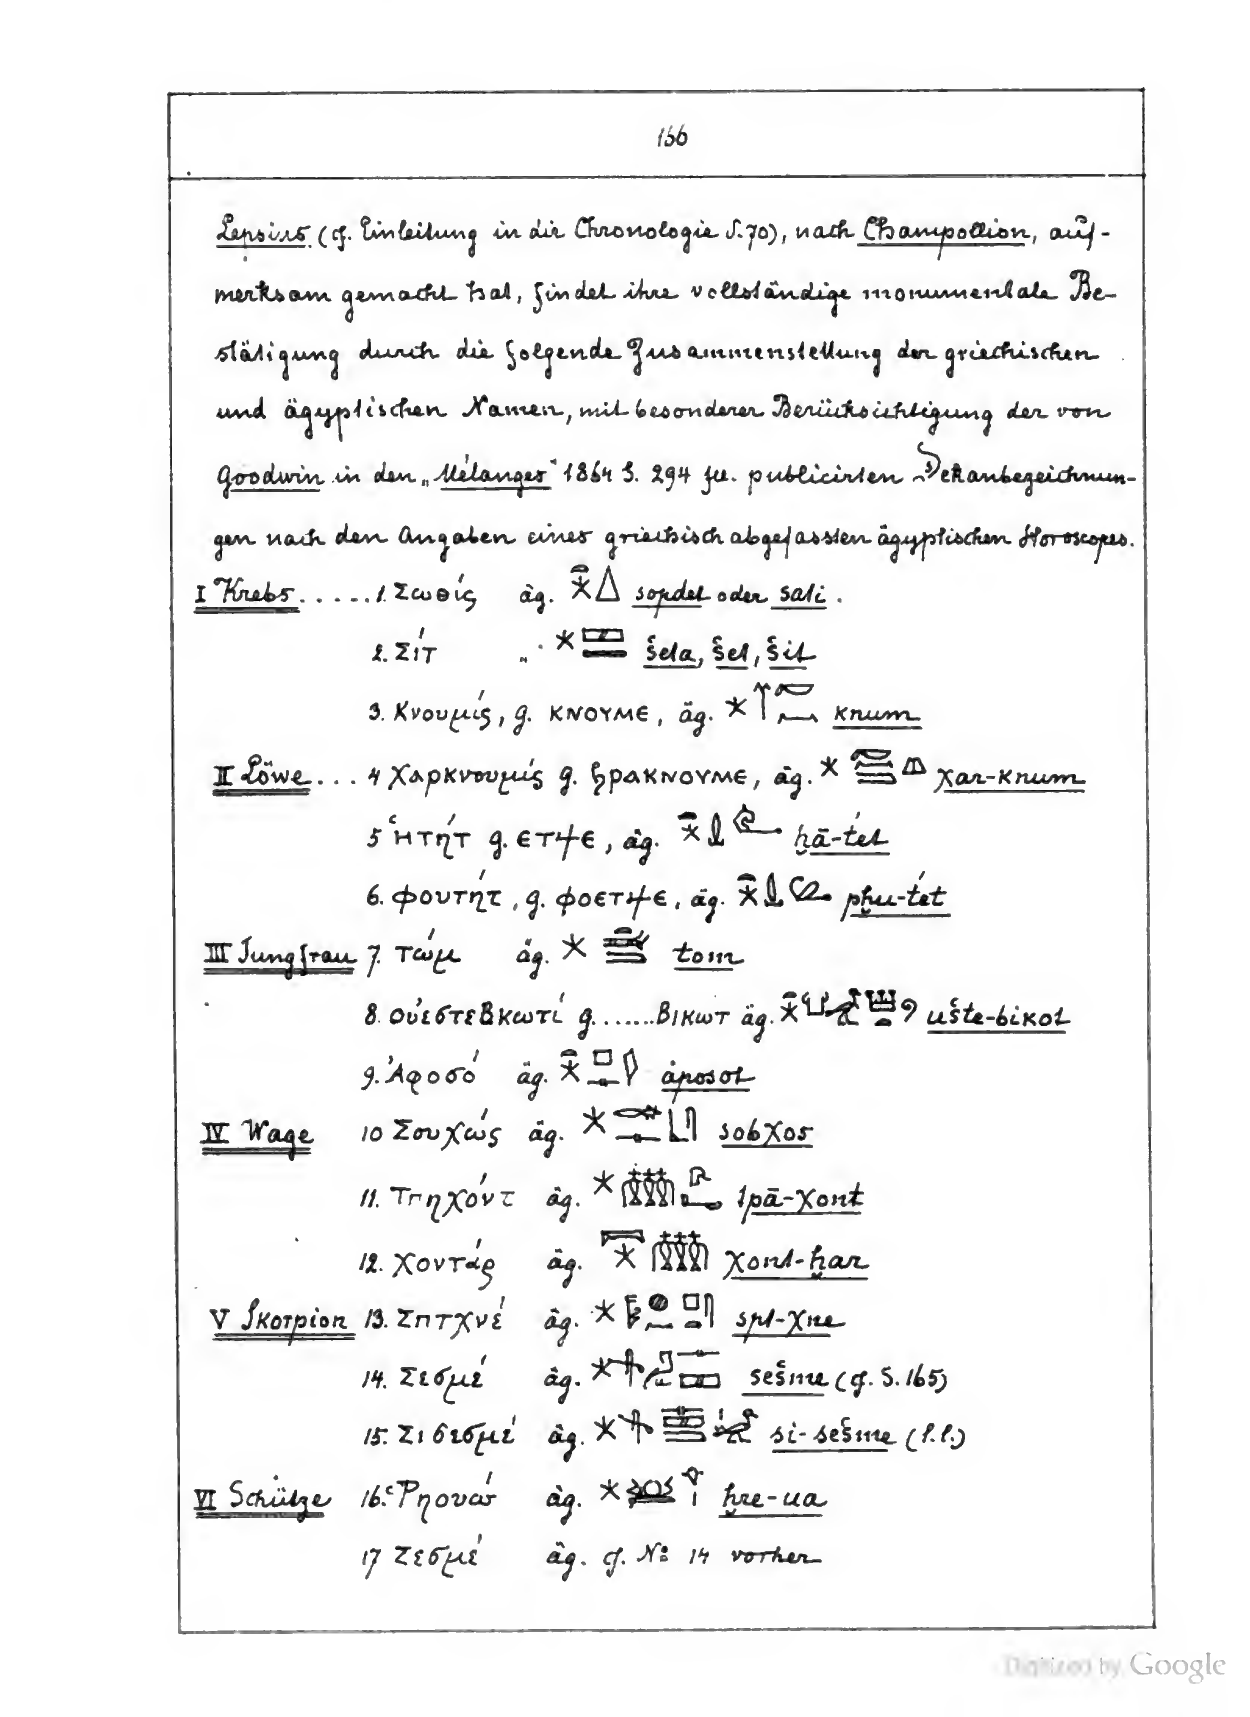 166
Lepsius (cf. Einleitung in die Chronologie S. 70), nach Champollion, auf-
merksam gemacht hat, findet ihre vollständige monumentale Be-
stätigung durch die folgende Zusammenstellung der griechischen
und ägyptischen Namen, mit besonderer Berücksichtigung der von
Goodwin in den „Mélanges" 1864 S. 294 fll. publicirten Dekanbezeichnun-
gen nach den Angaben eines griechisch abgefassten ägyptischen Horoscopes.
I Krebs.....1. Σωθίς äg. sopdet oder sati.
2. Σίτ „ šeta, šet, šit
3. Κνουμίς, g. ΚΝΟΥΜΕ, äg. knum
II Löwe... 4 Χαρκνουμίς g. ϩΡΑΚΝΟΥΜΕ, äg. χar-knum
5 Ἡτήτ g. ΕΤΨΕ, äg. ḫā-tét
6. Φουτήτ, g. ΦΟΕΤΨΕ, äg. pḫu-tét
III Jungfrau 7. Τώμ äg. tom
8. Οὐεστεβκωτί g.......ΒΙΚΩΤ äg. ušte-bikot
9. Ἀφοσό äg. áposot
IV Wage 10 Σουχώς äg. sobχos
11. Τπηχόντ äg. tpā-χont
12. Χοντάρ äg. χont-ḫar
V Skorpion 13. Σπτχνέ äg. spt-χne
14. Σεσμέ äg. sešme (cf. S. 165)
15. Σισεσμέ äg. si-sešme (l.l.)
VI Schütze 16. Ῥηουώ äg. ḫre-ua
17 Σεσμέ äg. cf. No 14 vorher
Digitized by Google